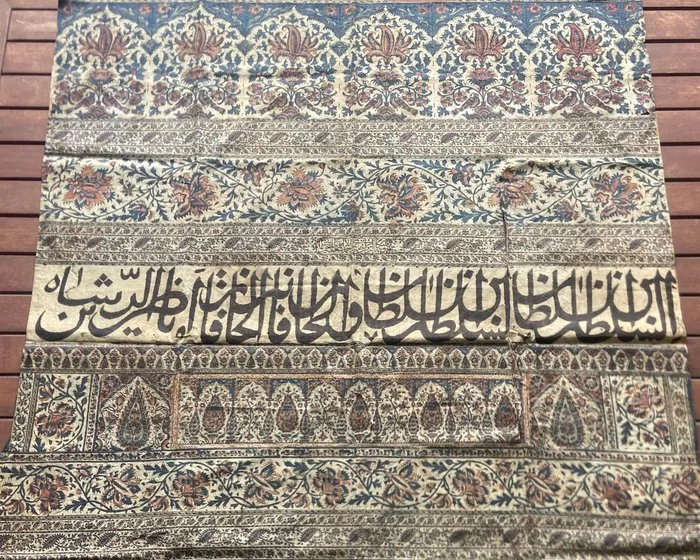 السلطان بن السلطان السلطان بن السلطان والخاقان بن الخاقان ناصر الدین شاه